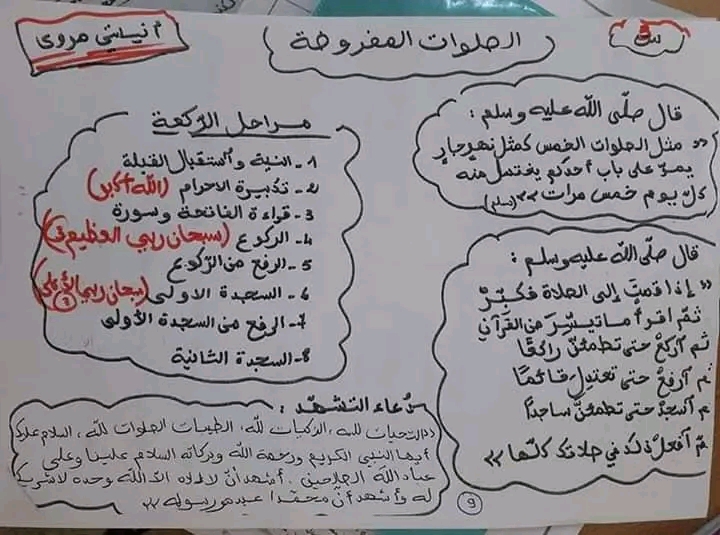 س3
الصلوات المفروضة
أنستي مروى
قال صلّى الله عليه وسلم :
« مثل الصلوات الخمس كمثل نهر جارٍ
يمرّ على باب أحدكم يغتسل منه
كلّ يوم خمس مرات » (مسلم)
قال صلّى الله عليه وسلم :
« إذا قمت إلى الصلاة فكبّر
ثمّ اقرأ ما تيسّر من القرآن
ثم اركع حتى تطمئنّ راكعًا
ثم ارفع حتى تعتدل قائمًا
ثم اسجد حتى تطمئنّ ساجدًا
ثمّ افعل ذلك في صلاتك كلّها »
مراحل الركعة
1- النية واستقبال القبلة
2- تكبيرة الاحرام (الله أكبر)
3- قراءة الفاتحة وسورة
4- الركوع (سبحان ربي العظيم 3)
5- الرفع من الرّكوع
6- السجدة الاولى (سبحان ربي الأعلى
7- الرفع من السجدة الأولى
8- السجدة الثانية
دُعاء التشهّد :
« التحيات لله، الزكيات لله، الطيبات الصلوات لله، السلام عليك
أيها النبي الكريم ورحمة الله وبركاته السلام علينا وعلى
عباد الله الصالحين. أشهد أنّ لا إلاه الاّ الله وحده لا شريك
له وأشهد أنّ محمّدا عبده ورسوله »
9